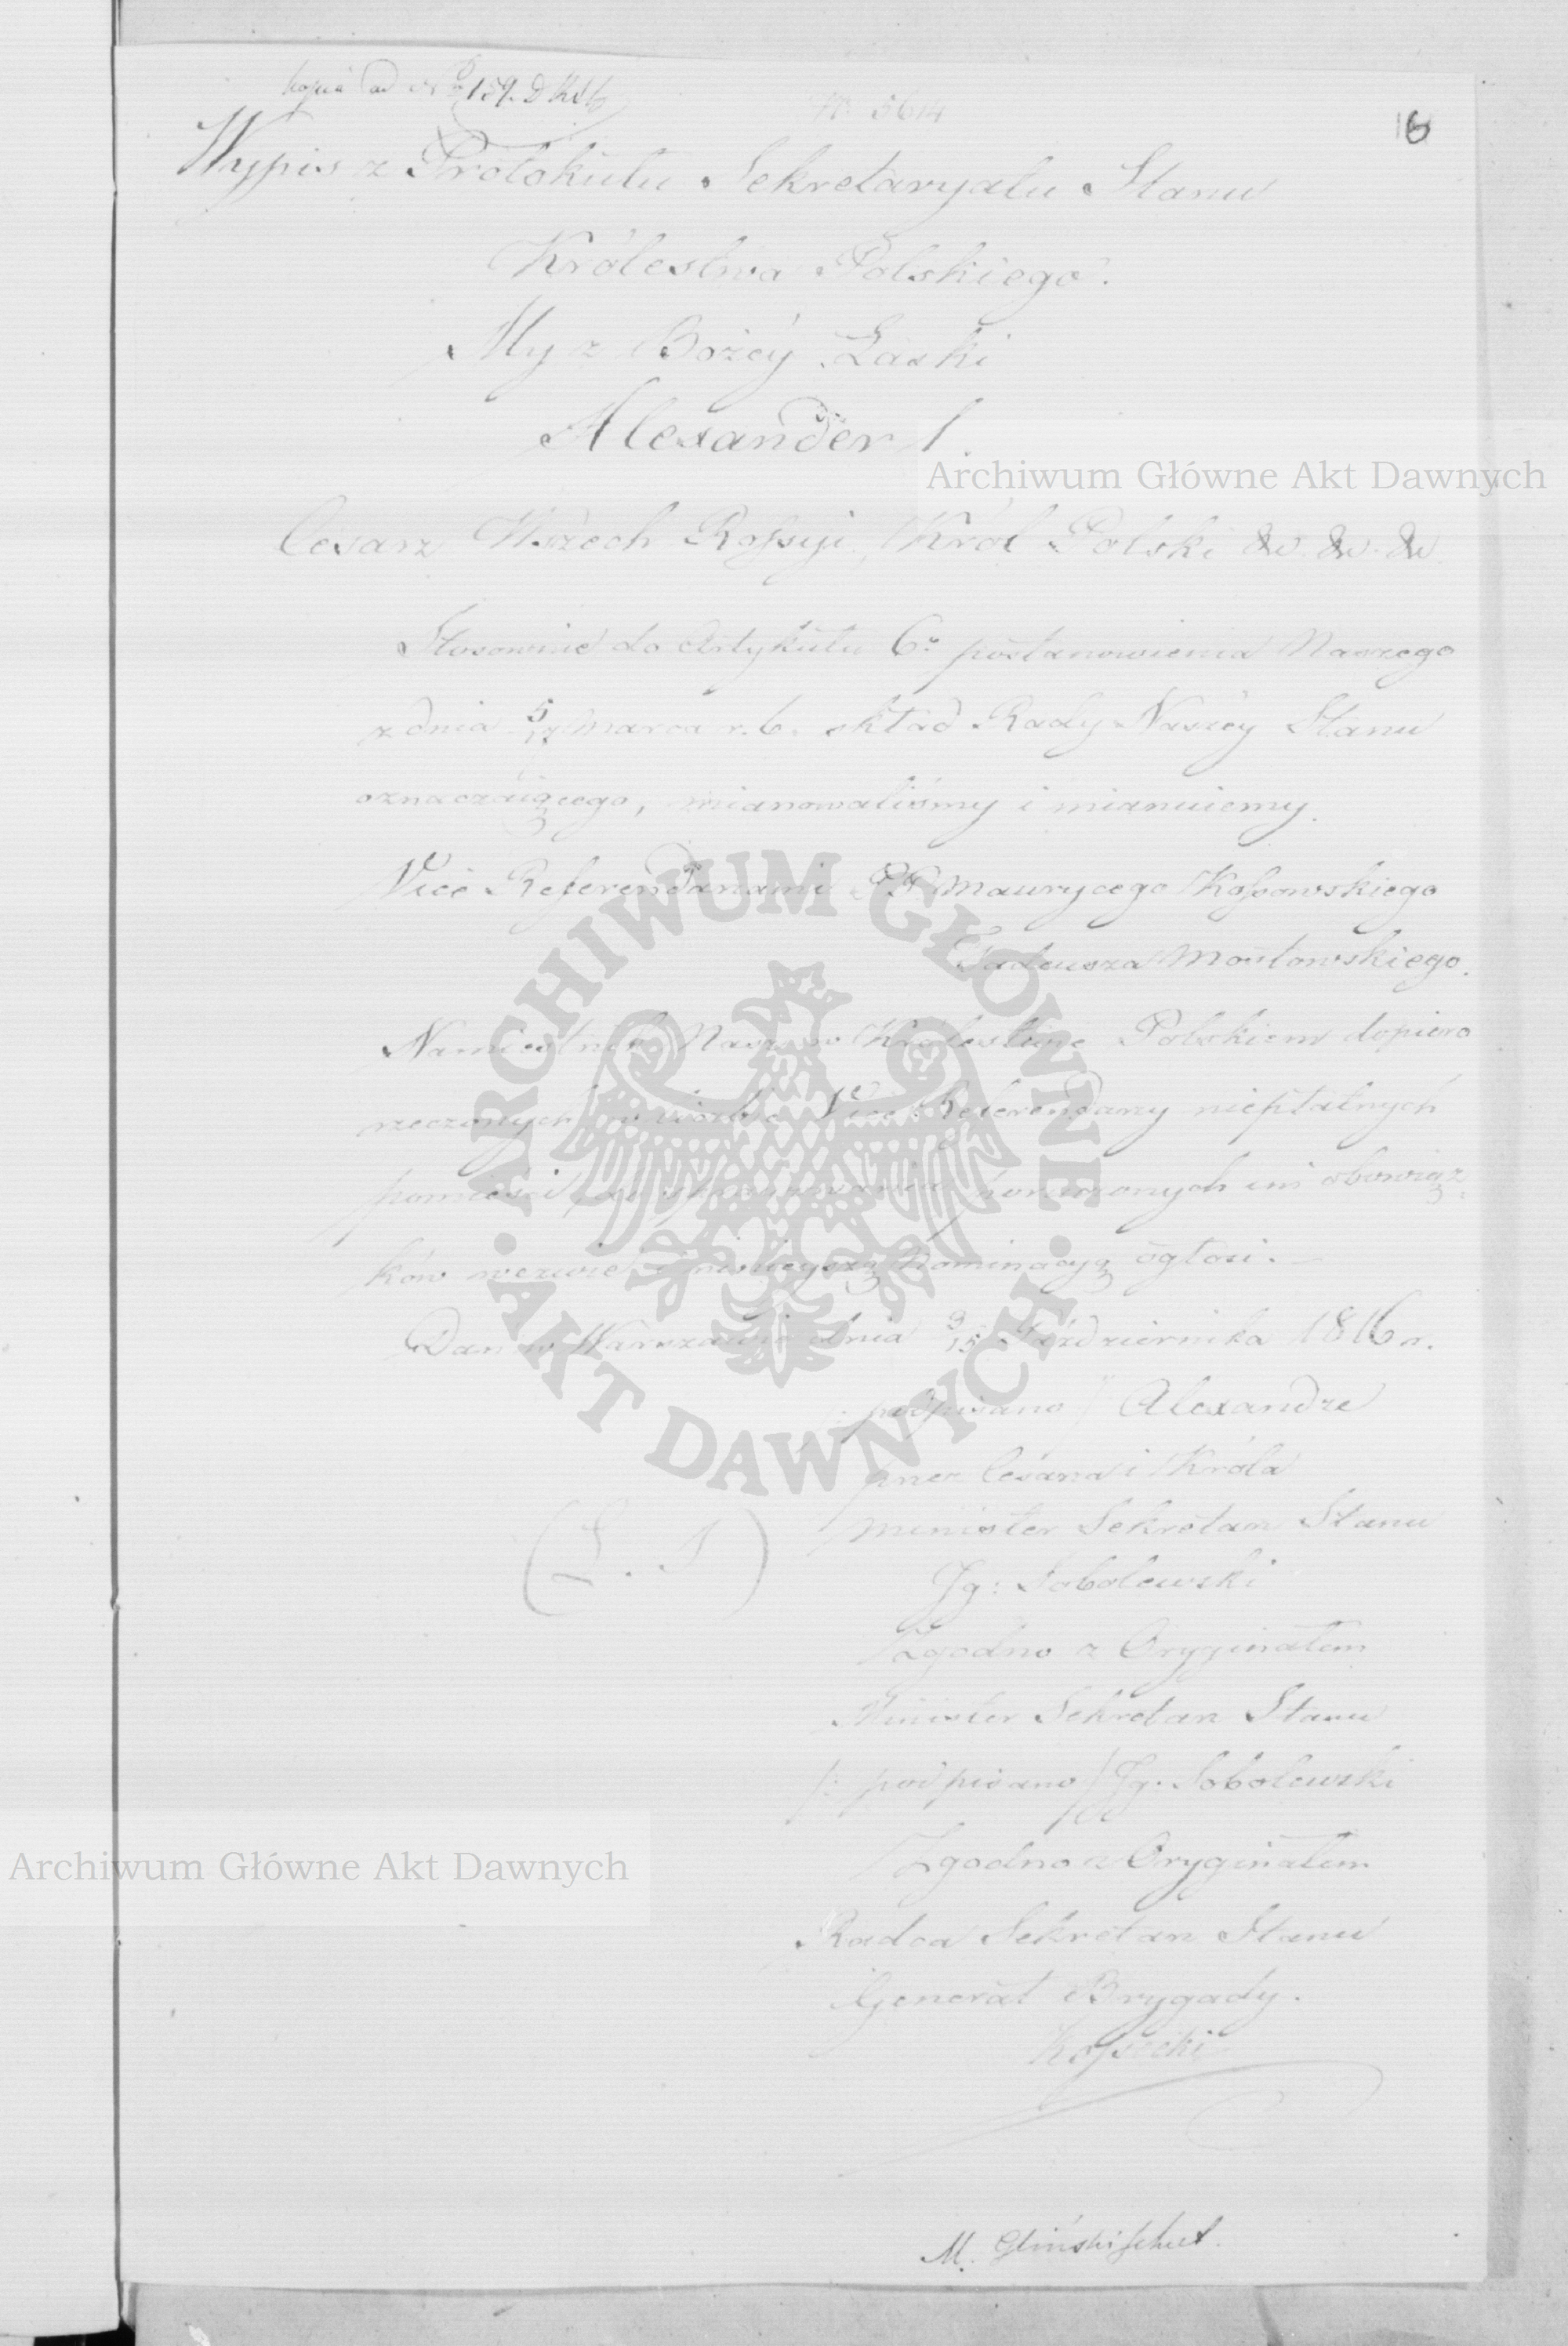 kopia ad N° 159. D K S
N. 5614
16
Wypis z Protokułu Sekretaryatu Stanu
Królestwa Polskiego.
My z Bożéy Łaski
Alexander I.
Cesarz Wszech Rossyi, Król Polski &c. &c. &c.
Stosownie do Artykułu 6° postanowienia Naszego
z dnia 5/17 Marca r. b. skład Rady Naszéy Stanu
oznaczaiącego, mianowaliśmy i mianuiemy.
Vice Referendarzami PP. Maurycego Kossowskiego
Tadeusza Mostowskiego.
Namiestnik Nasz w Królestwie Polskiem dopiero
rzeczonych w liczbie Vice Referendarzy nieptatnych
pomieści, do sprawowania poruczonych im obowiąz-
ków wezwie i ninieyszą Nominacyą ogłosi. —
Dan w Warszawie dnia 3/15 Października 1816 r.
: podpisano / Alexandre
przez Césarza i Króla
Minister Sekretarz Stanu
Jg: Sobolewski
(L. S)
Zgodno z Oryginałem
Minister Sekretarz Stanu
/: podpisano / Jg: Sobolewski
Zgodno z Oryginałem
Radca Sekretarz Stanu
Generał Brygady.
Kossecki
M. Gliński
Archiwum Główne Akt Dawnych
ARCHIWUM GŁÓWNE
· AKT DAWNYCH ·
Archiwum Główne Akt Dawnych